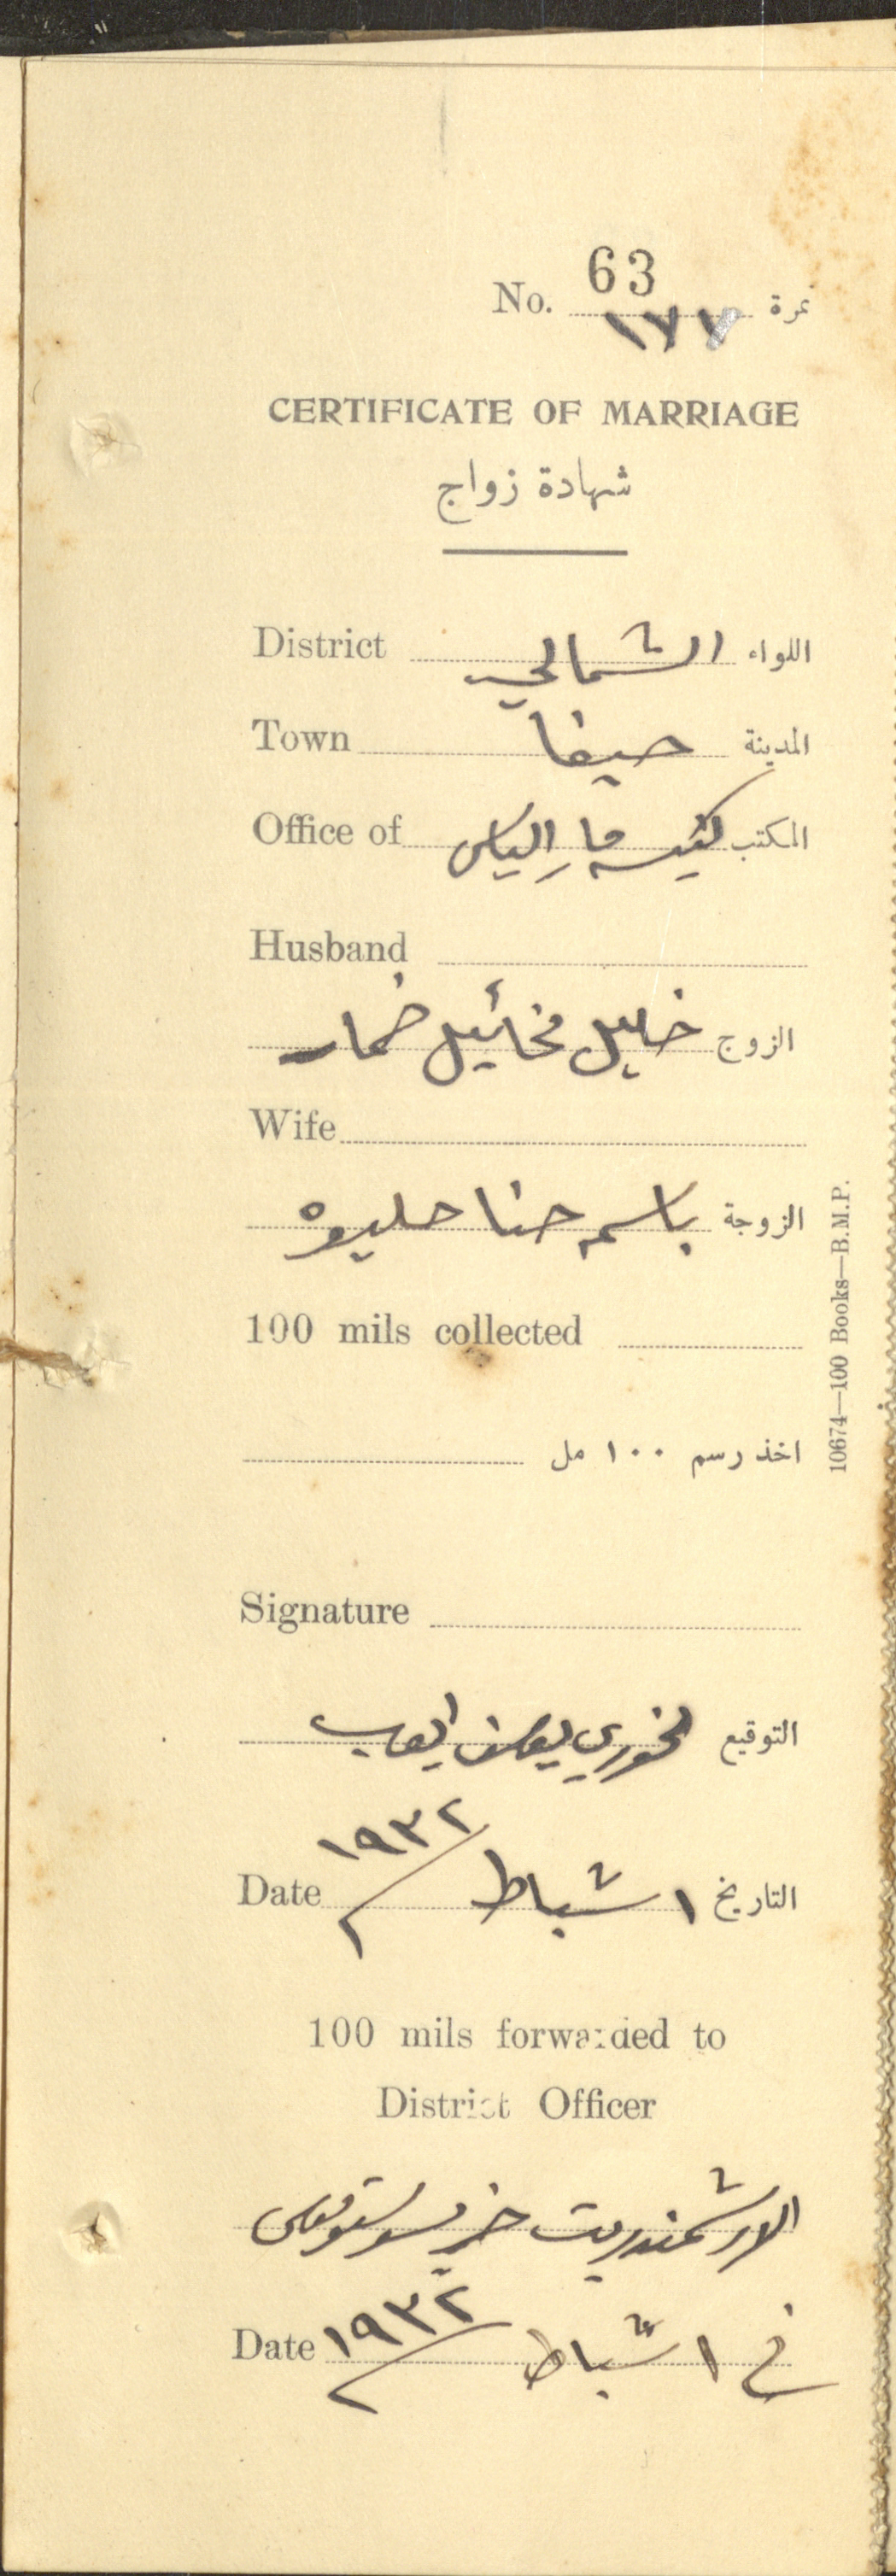 No. 63 نمرة
١٧٧
CERTIFICATE OF MARRIAGE
شهادة زواج
District الشمالي اللواء
Town حيفا المدينة
Office of كنيسة مار الياس المكتب
Husband
الزوج خليل مخائيل خمار
Wife
الزوجة باسمه حنا حليوه
100 mils collected
اخذ رسم ١٠٠ مل
Signature
التوقيع الخوري يوسف ايوب
Date ١ شباط ١٩٣٢ التاريخ
100 mils forwarded to
District Officer
الارشمندريت خريسوستوموس
Date في ١ شباط ١٩٣٢
10674—100 Books—B.M.P.